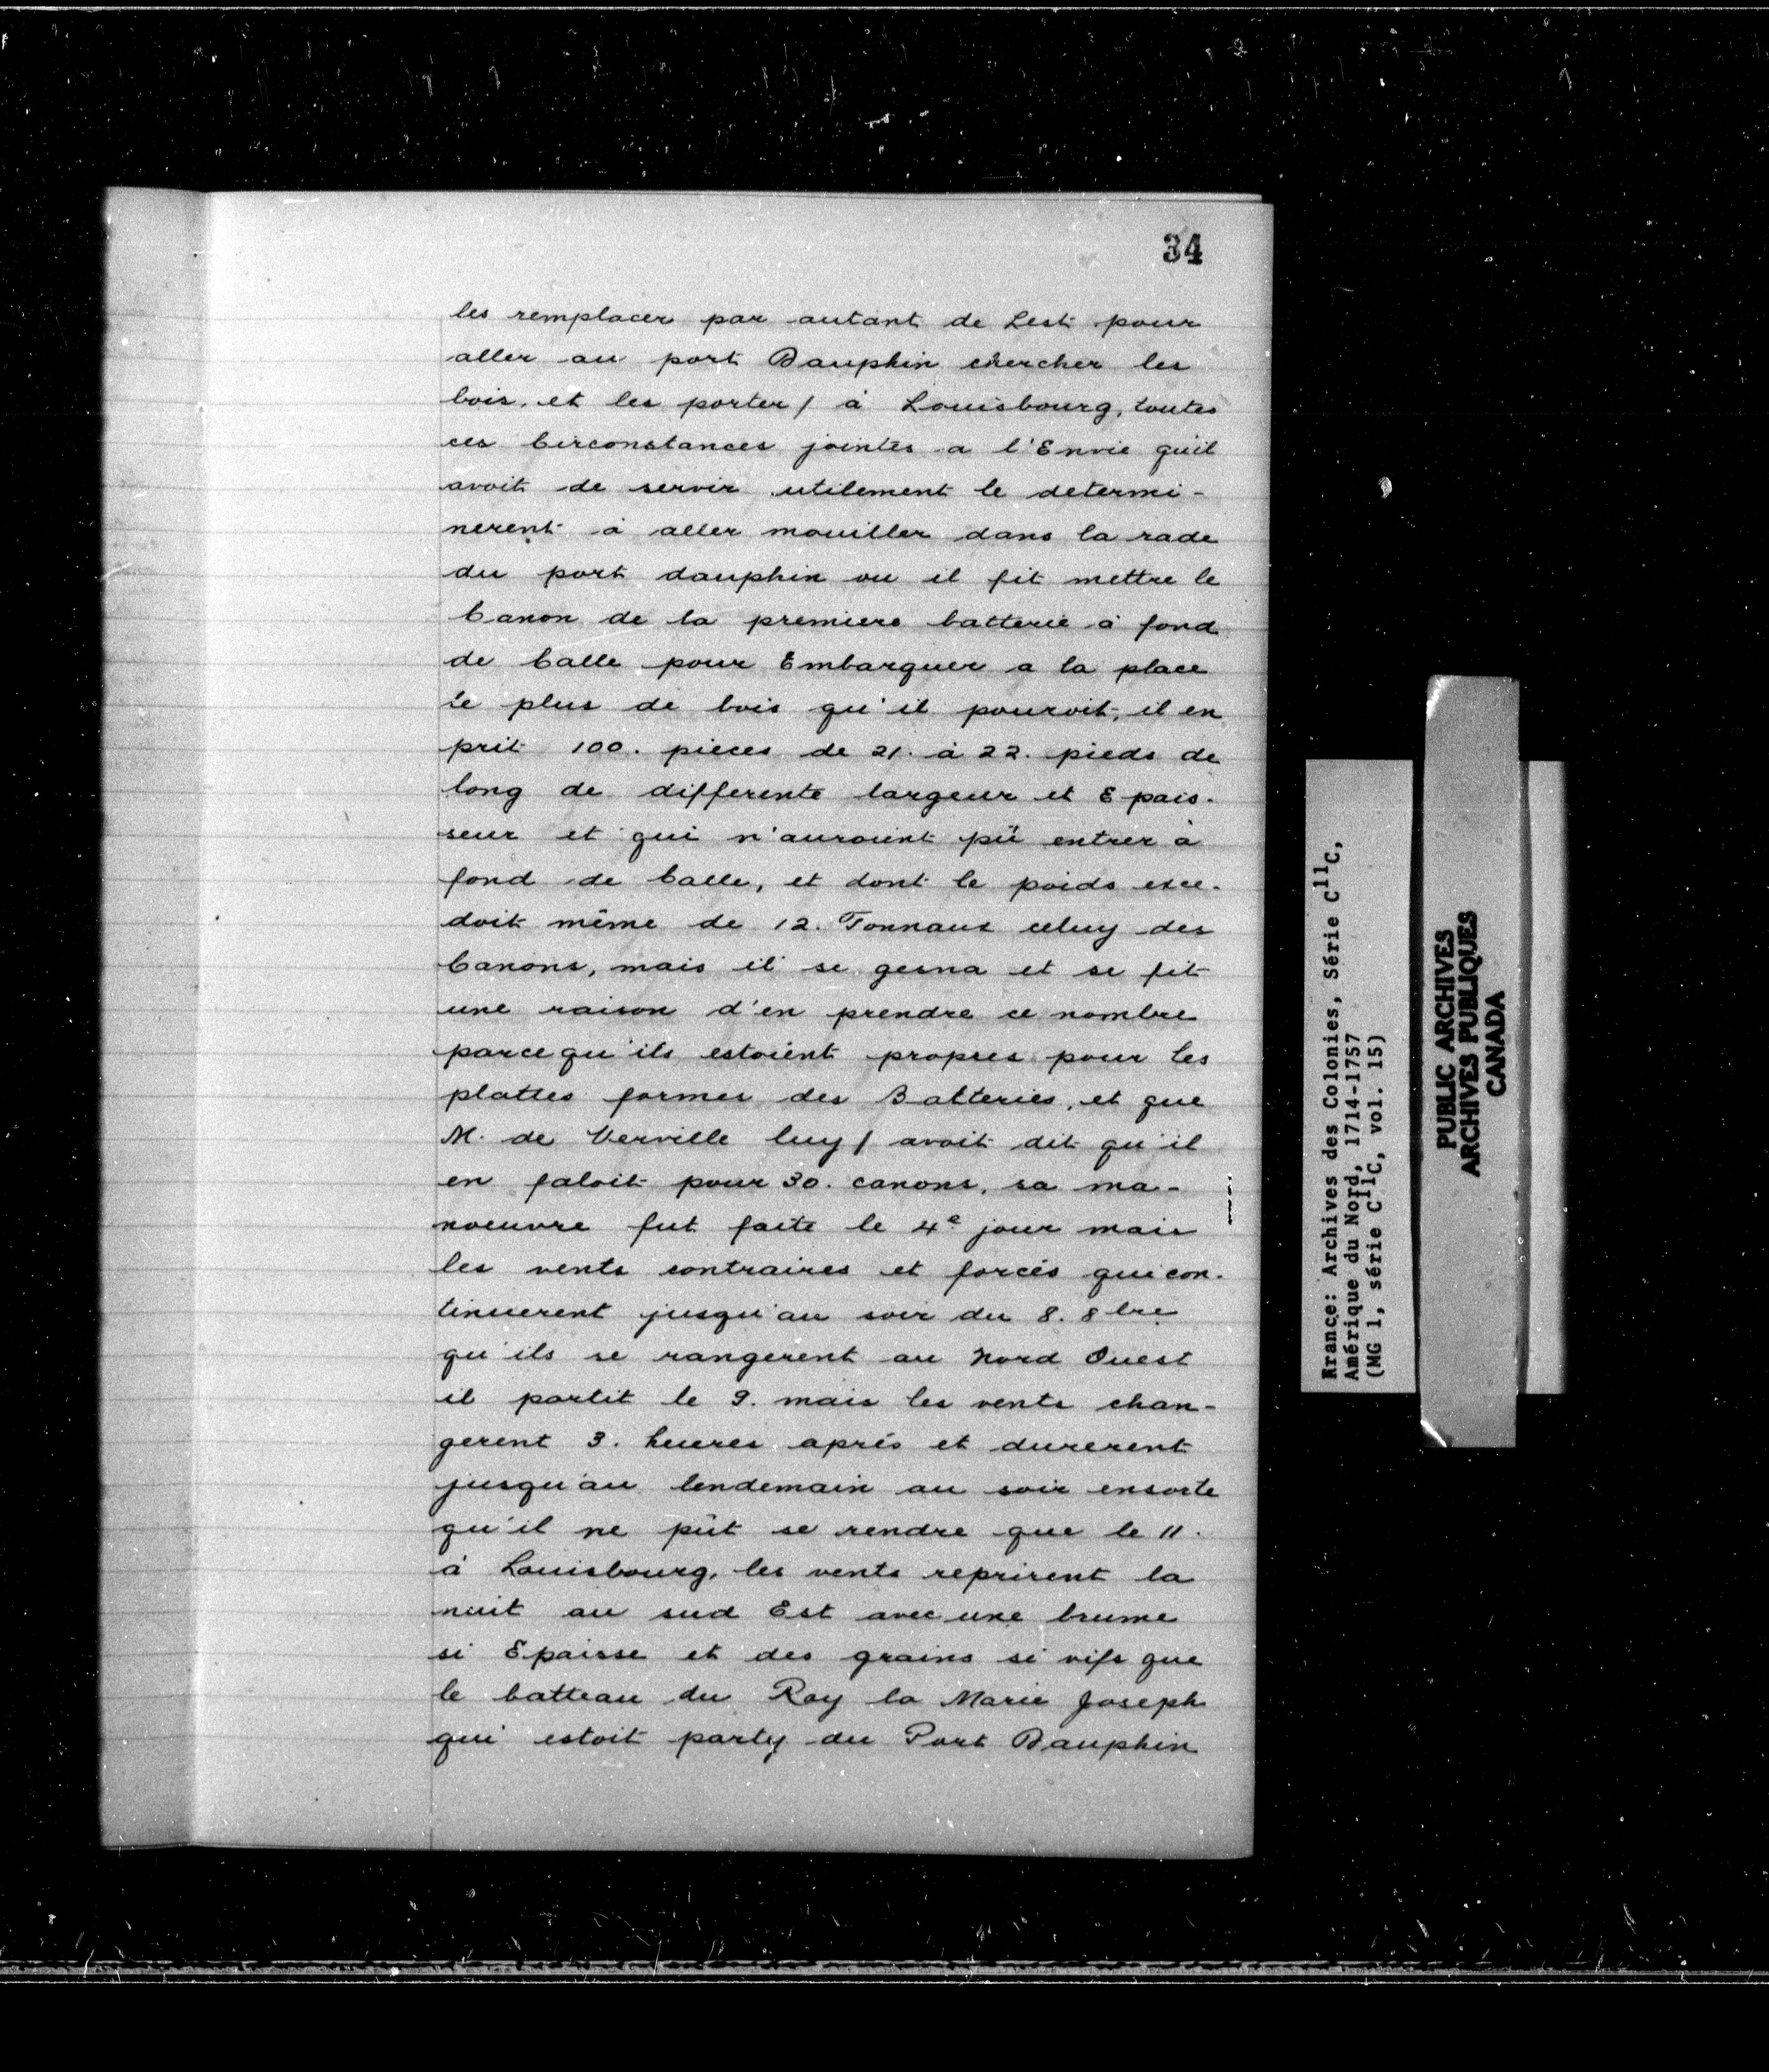 34
les remplacer par autant de Lest pour
aller au port Dauphin chercher les
bois, et les porter / à Louisbourg, toutes
ces Circonstances jointes a l'Envie qu'il
avoit de servir utilement le determi-
nerent à aller mouiller dans la rade
du port dauphin ou il fit mettre le
Canon de la premiere batterie à fond
de Calle pour Embarquer a la place
le plus de bois qu'il pouroit, il en
prit 100. pieces de 21. à 22. pieds de
long de differente largeur et Epais-
seur et qui n'auroient pû entrer à
fond de Calle, et dont le poids exce-
doit même de 12. Tonnaux celuy des
Canons, mais il se gesna et se fit
une raison d'en prendre ce nombre
parcequ'ils estoient propres pour les
plattes formes des Batteries, et que
M. de Verville luy / avoit dit qu'il
en faloit pour 30. canons, sa ma-
noeuvre fut faite le 4e jour mais
les vents contraires et forcés qui con-
tinuerent jusqu'au soir du 8. 8bre
qu'ils se rangerent au Nord Ouest
il partit le 9. mais les vents chan-
gerent 3. heures aprés et durerent
jusqu'au lendemain au soir ensorte
qu'il ne pût se rendre que le 11.
à Louisbourg, les vents reprirent la
nuit au sud Est avec une brume
si Epaisse et des grains si vifs que
le batteau du Roy la Marie Joseph
qui estoit party du Port Dauphin
France: Archives des Colonies, Série C11C,
Amérique du Nord, 1714-1757
(MG 1, série C11C, vol. 15)
PUBLIC ARCHIVES
ARCHIVES PUBLIQUES
CANADA